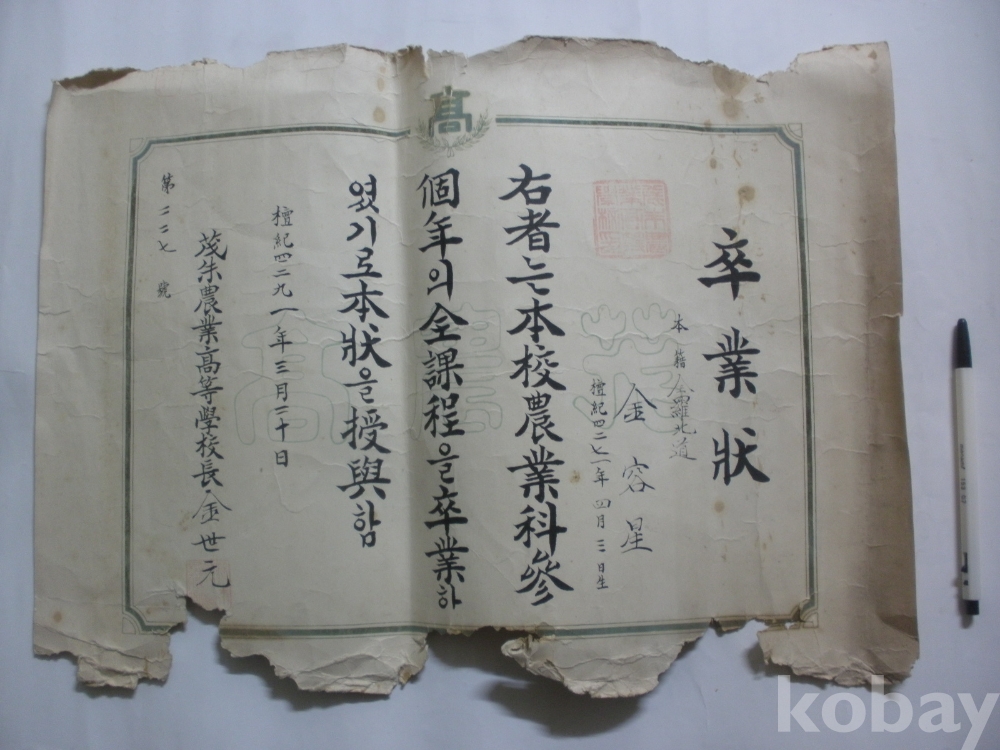 高
卒業狀
本籍 全羅北道
金容星
檀紀四二七一年四月三日生
右者는本校農業科參
個年의全課程을卒業하
였기로本狀을授與함
檀紀四二九一年三月二十日
茂朱農業高等學校長 金世元
第二二七號
kobay